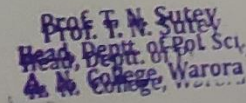 Prof. T. N. Sutey
Head, Deptt. of Pol Sci,
A. N. College, Warora